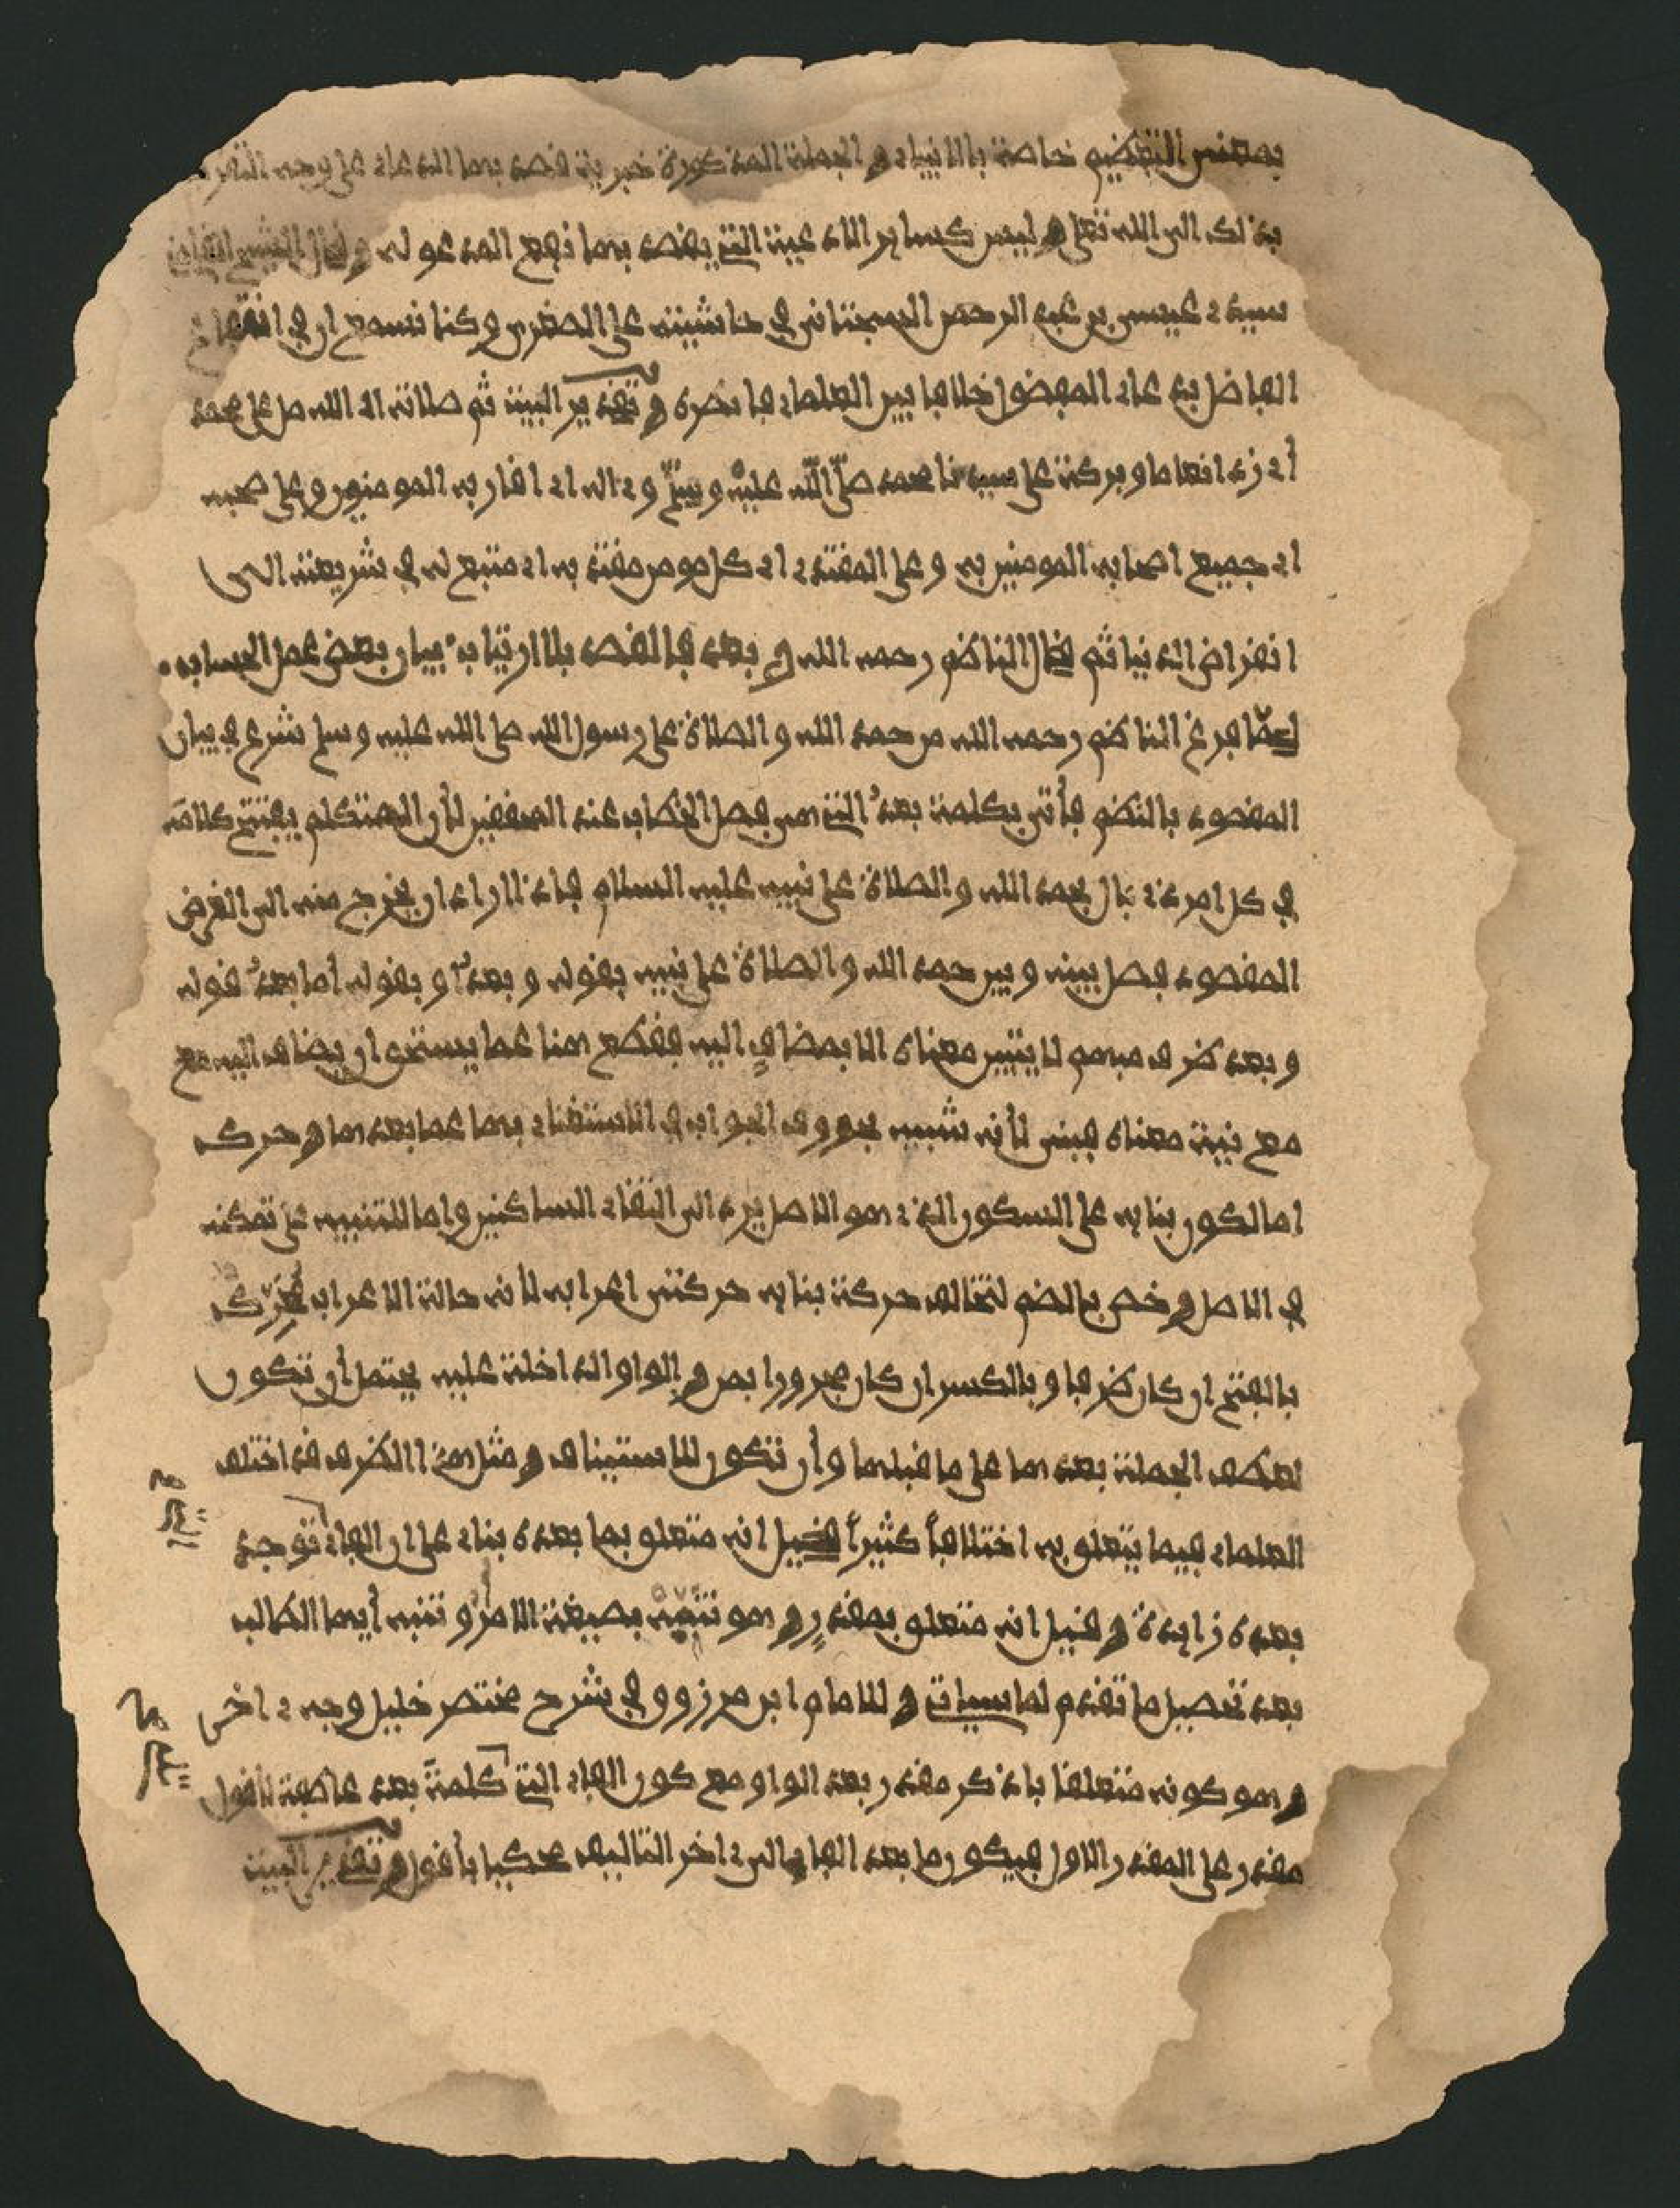 بمعنى التعظيم خاصة بالانبياء والجملة المذكورة خبرية قصد بها الدعاء على وجه التقرب
بذلك الى الله تعلى وليس كساير الادعية التي يقصد بها نفع المدعو له وقال الشيخ
سيدي عيسى بن عبد الرحمن السجتاني في حاشيته على الصغرى وكنا نسمع ان في انتفاع
الفاضل بدعاء المفضول خلافا بين العلماء فانظره وتقدير البيت ثم صلاة الله صل على محمد
أي زد انعاما وبركة على سيدنا محمد صلّى اللّه عليه وسلّم وءاله اي اقاربه المومنين وعلى صحبه
اي جميع اصحابه المومنين به وعلى المقتدي اي كل مومن مقتد به اي متبع له في شريعته الى
انقراض الدنيا ثم قال الناظم رحمه الله وبعد فالقصد بلا ارتياب بيان بعض عمل الحساب
لمّا فرغ الناظم رحمه الله من حمد الله والصلاة على رسول الله صلى الله عليه وسلم شرع في بيان
المقصود بالنظم فأتى بكلمة بعدُ التي هي فصل الخطاب عند المحققين لأن المتكلم يفتتح كلامه
في كل امر ذي بال بحمد الله والصلاة على نبيه عليه السلام فاذا اراد ان يخرج منه الى الغرض
المقصود فصل بينه وبين حمد الله والصلاة على نبيه بقوله وبعدُ وبقوله أما بعدُ قوله
وبعد ظرف مبهم لا يتبين معناه الا بمضافٍ اليه فقطع هنا عما يستحق ان يضاف اليه مع
مع نية معناه فبنى لأنه شبيه بحروف الجواب في الاستغناء بها عما بعدها وحرك
اما لكون بنايه على السكون الذي هو الاصل يردي الى التقاء الساكنين واما للتنبيه على تمكنه
في الاصل وخص بالضم لتخالف حركة بنايه حركتي اعرابه لانه حالة الاعراب يحرّك
بالفتح ان كان ظرفا وبالكسر ان كان مجرورا بمن والواو الداخلة عليه يحتمل أن تكون
لعطف الجملة بعدها على ما قبلها وأن تكون للاستيناف ومثل هذا الظرف قد اختلف
العلماء فيما يتعلق به اختلافاً كثيراً فقيل انه متعلق بما بعده بناء على ان الفاء توجد
بعده زايدة وقيل انه متعلق بمقدرٍ وهو تنبيه بصيغة الامر و تنبه أيها الطالب
بعد تحصيل ما تقدم لما سياتي وللامام ابن مرزوق في شرح مختصر خليل وجه ءاخر
وهو كونه متعلقا باذكر مقدر بعد الواو مع كون الفاء التي كلمة بعد عاطفة لاقول
مقدر على المقدر الاول فيكون ما بعد الفاء الى ءاخر التاليف محكيا بأقول وتقدير البيت